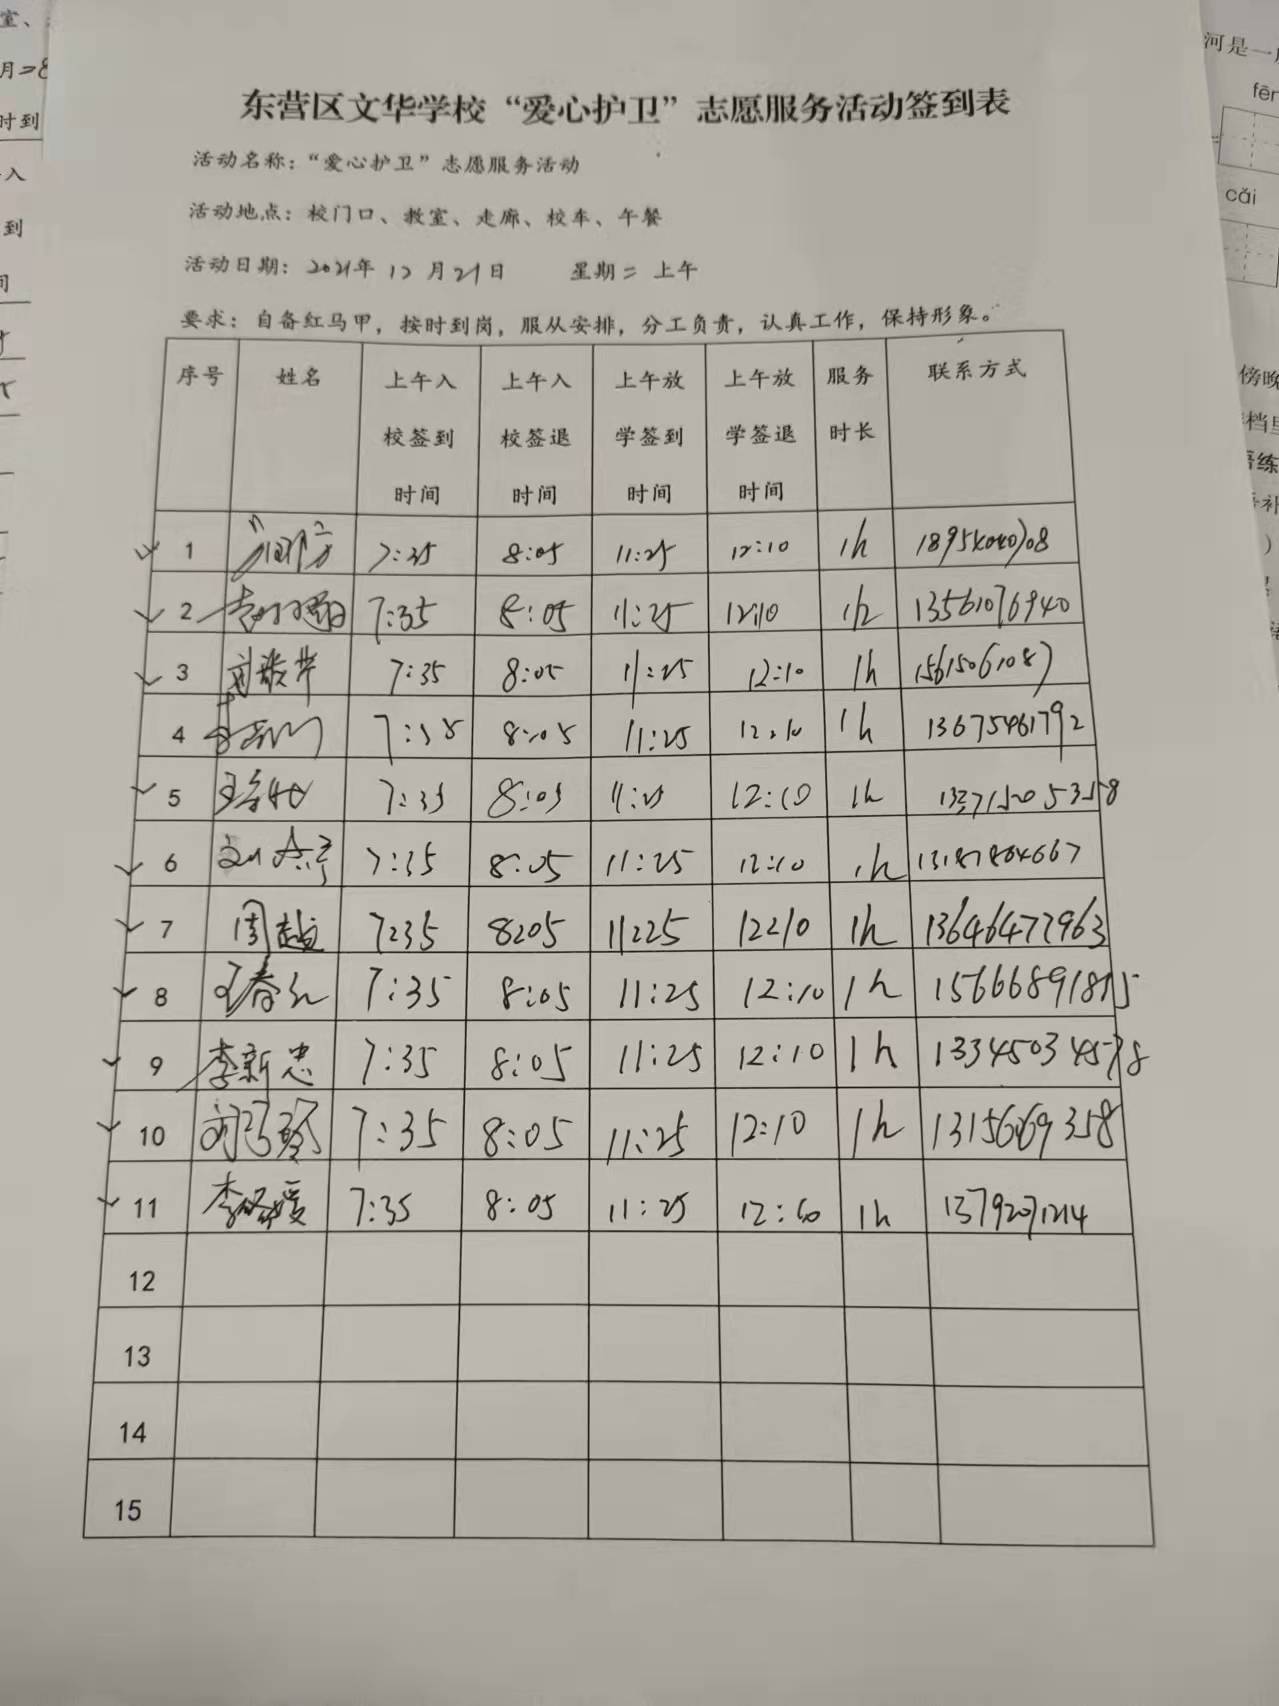 东营区文华学校“爱心护卫”志愿服务活动签到表
活动名称：“爱心护卫”志愿服务活动
活动地点：校门口、教室、走廊、校车、午餐
活动日期：2021年12月21日 星期二 上午
要求：自备红马甲，按时到岗，服从安排，分工负责，认真工作，保持形象。
序号 姓名 上午入校签到时间 上午入校签退时间 上午放学签到时间 上午放学签退时间 服务时长 联系方式
1 7:35 8:05 11:25 12:10 1h
2 7:35 8:05 11:25 12:10 1h 13561076940
3 7:35 8:05 11:25 12:10 1h 15615061087
4 7:35 8:05 11:25 12:10 1h 13675461792
5 7:35 8:05 11:25 12:10 1h
6 7:35 8:05 11:25 12:10 1h 13187864667
7 周越 7:35 8:05 11:25 12:10 1h 13646477963
8 王春红 7:35 8:05 11:25 12:10 1h 15666891815
9 李新忠 7:35 8:05 11:25 12:10 1h 13345034578
10 7:35 8:05 11:25 12:10 1h 13156069358
11 7:35 8:05 11:25 1h 13792071214
12
13
14
15
室、
时到
入
到
河是一
cǎi
傍晚